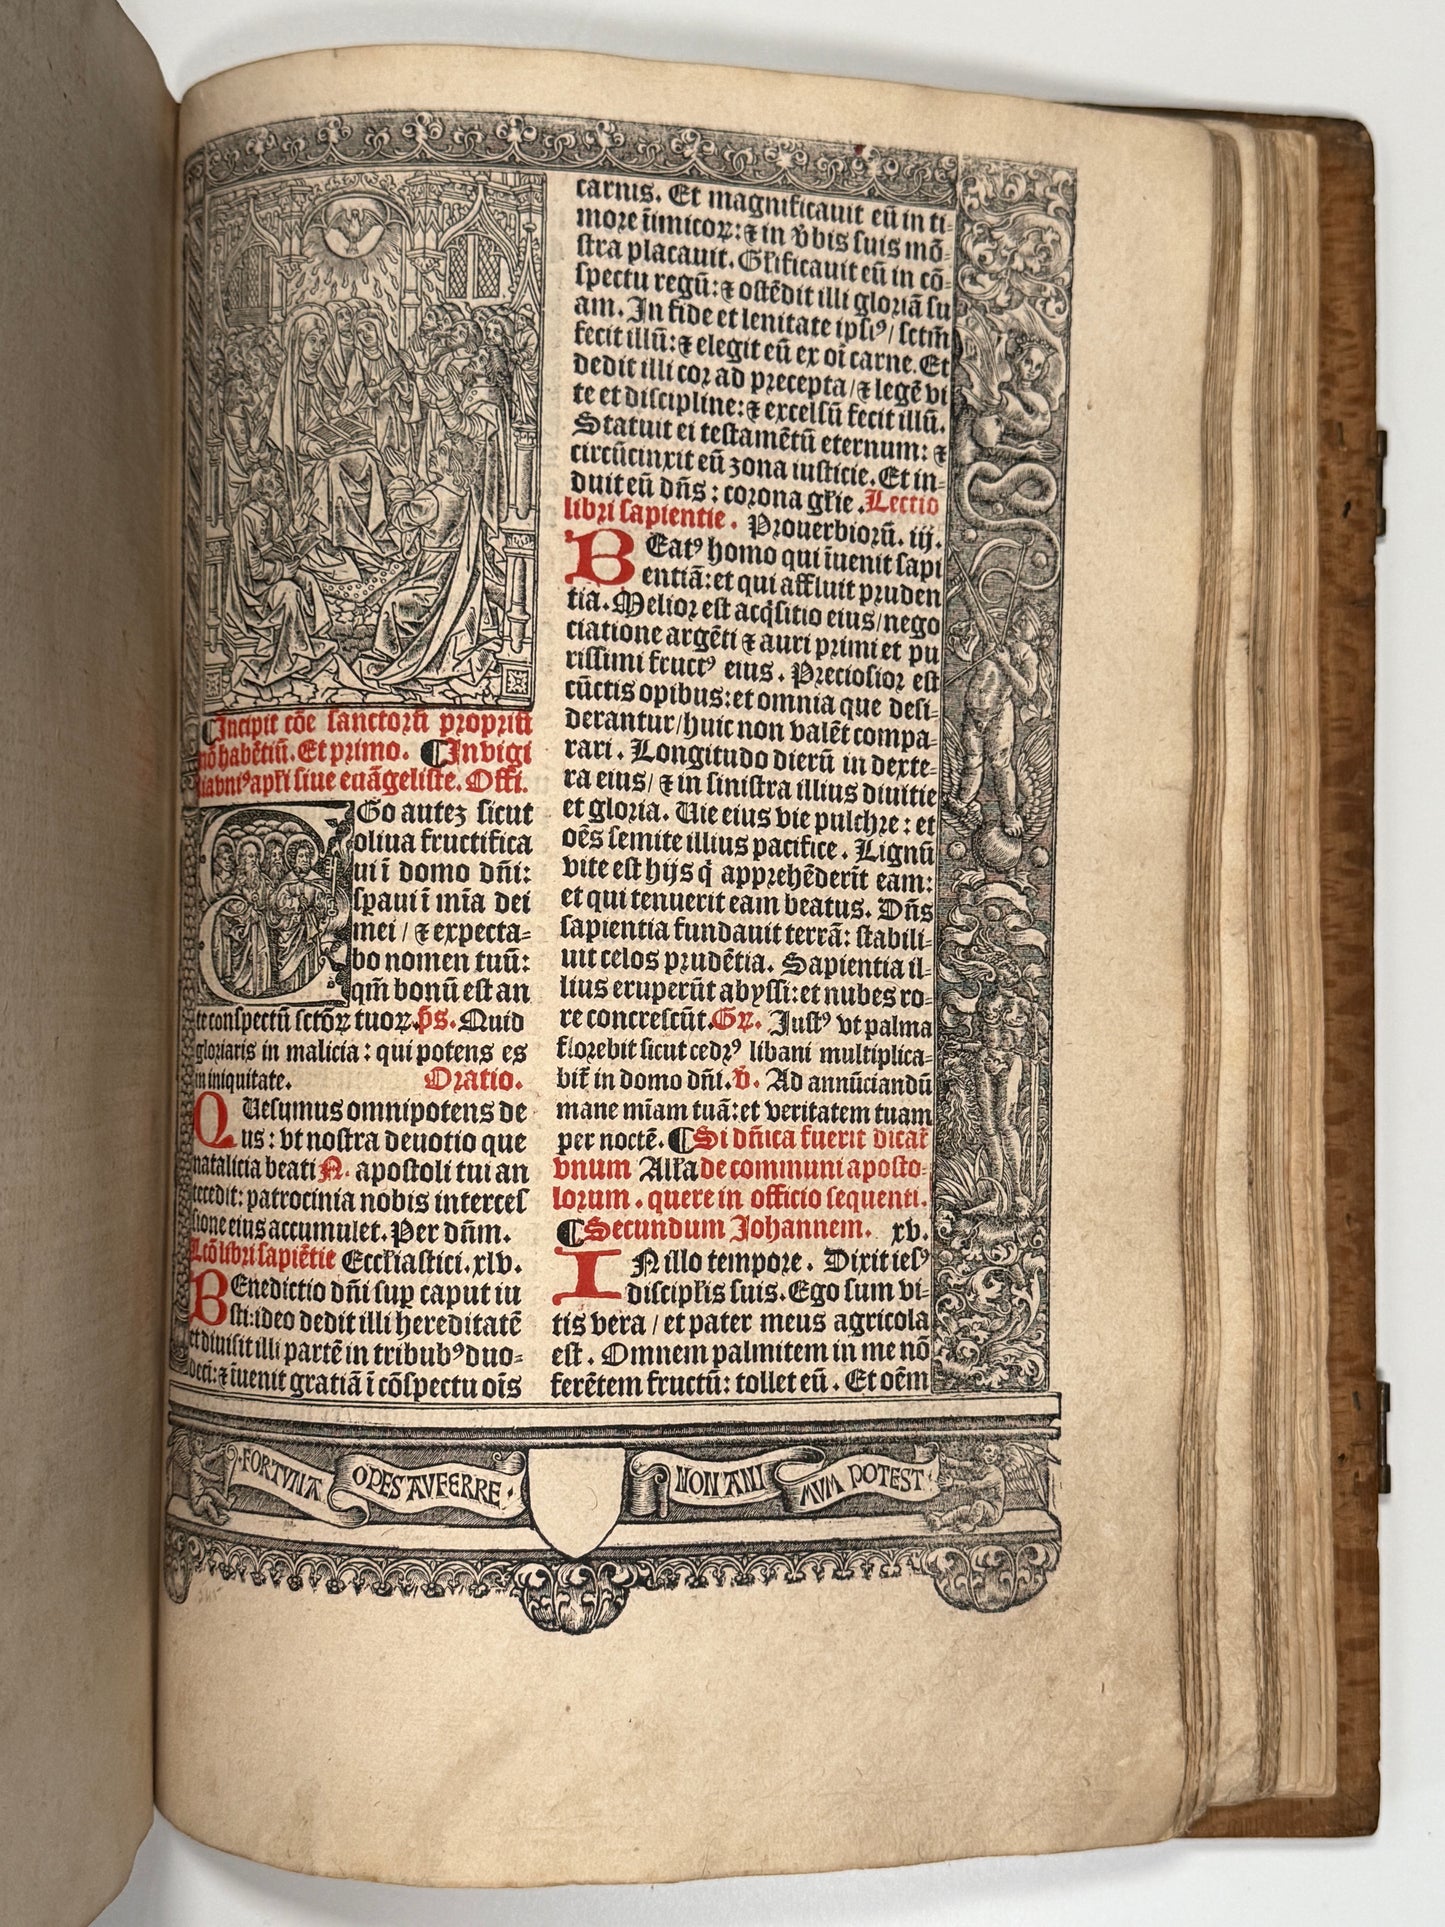 ¶Incipit cōe sanctorū propriū
nō habētiū. Et primo. ¶In vigi
lia vniꝰ apłi siue euāgeliste. Offi.
EGo autez sicut
oliua fructifica
ui ī domo dn̄i:
speraui ī mīa dei
mei / ⁊ expecta⸗
bo nomen tuū:
qm̄ bonū est an
te conspectū sctōꝝ tuoꝝ. p̄s. Quid
gloriaris in malicia: qui potens es
in iniquitate. Oratio.
QUesumus omnipotens de
us: vt nostra deuotio que
natalicia beati N. apostoli tui an
tecedit: patrocinia nobis interces
sione eius accumulet. Per dn̄m.
Lcō libri sapiētie Eccłiastici. xlv.
BEnedictio dn̄i sup caput iu
sti: ideo dedit illi hereditatē
et diuisit illi partē in tribubꝰ duo⸗
deci: ⁊ īuenit gratiā ī cōspectu oīs
carnis. Et magnificauit eū in ti⸗
more īimicoꝝ: ⁊ in v̄bis suis mō⸗
stra placauit. Głificauit eū in cō⸗
spectu regū: ⁊ ostēdit illi gloriā su
am. In fide et lenitate ipsiꝰ / sctm̄
fecit illū: ⁊ elegit eū ex oī carne. Et
dedit illi cor ad precepta / ⁊ legē vi
te et discipline: ⁊ excelsū fecit illū.
Statuit ei testamētū eternum: ⁊
circūcinxit eū zona iusticie. Et in⸗
duit eū dn̄s: corona głie. Lectio
libri sapientie. Prouerbiorū. iij.
BEatꝰ homo qui īuenit sapi
entiā: et qui affluit pruden
tia. Melior est acq̄sitio eius / nego
ciatione argēti ⁊ auri primi et pu
rissimi fructꝰ eius. Preciosior est
cūctis opibus: et omnia que desi⸗
derantur / huic non valēt compa⸗
rari. Longitudo dierū in dexte⸗
ra eius / ⁊ in sinistra illius diuitie
et gloria. Uie eius vie pulchre: et
oēs semite illius pacifice. Lignū
vite est hijs q̄ apprehēderīt eam:
et qui tenuerit eam beatus. Dn̄s
sapientia fundauit terrā: stabili⸗
uit celos prudētia. Sapientia il⸗
lius eruperūt abyssi: et nubes ro⸗
re concrescūt. Gꝝ. Justꝰ vt palma
florebit sicut cedrꝰ libani multiplica⸗
bit̄ in domo dn̄i. v̄. Ad annūciandū
mane mīam tuā: et veritatem tuam
per noctē. ¶Si dn̄ica fuerit dicat̄
vnum Ałła de communi aposto⸗
lorum. quere in officio sequenti.
¶Secundum Johannem. xv.
IN illo tempore. Dixit iesꝰ
discipłis suis. Ego sum vi⸗
tis vera / et pater meus agricola
est. Omnem palmitem in me nō
ferētem fructū: tollet eū. Et oēm
·FORTVNA OPES AVFERRE· NON ANI MVM POTEST·